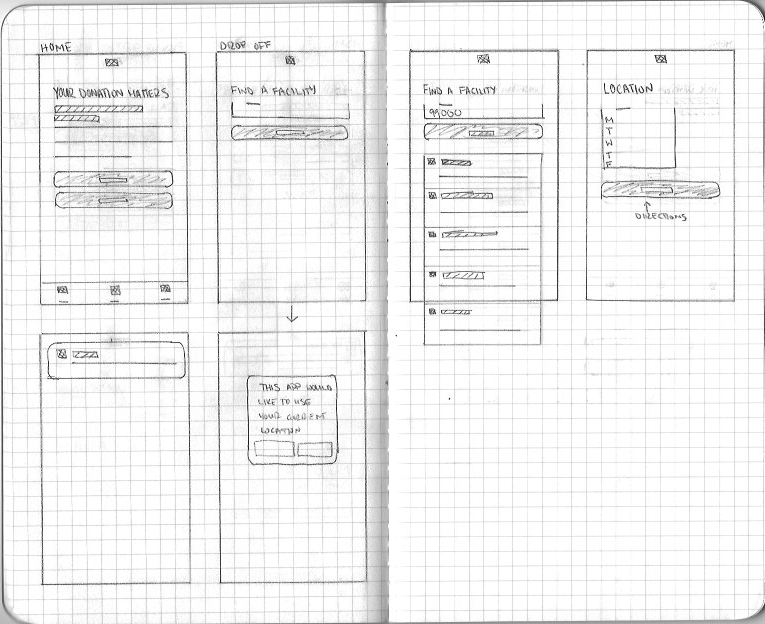 HOME
YOUR DONATION MATTERS
DROP OFF
FIND A FACILITY
THIS APP WOULD
LIKE TO USE
YOUR CURRENT
LOCATION
FIND A FACILITY
LOCATION
M
T
W
T
F
DIRECTIONS